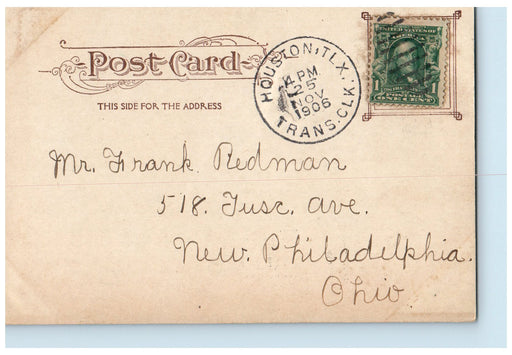 Post Card
THIS SIDE FOR THE ADDRESS
HOUSTON, TEX.
4 PM
25
NOV
1906
TRANS. CLK.
UNITED STATES OF
AMERICA
1 1
ONE CENT
Mr. Frank Redman
518. Tusc. Ave.
New Philadelphia.
Ohio.